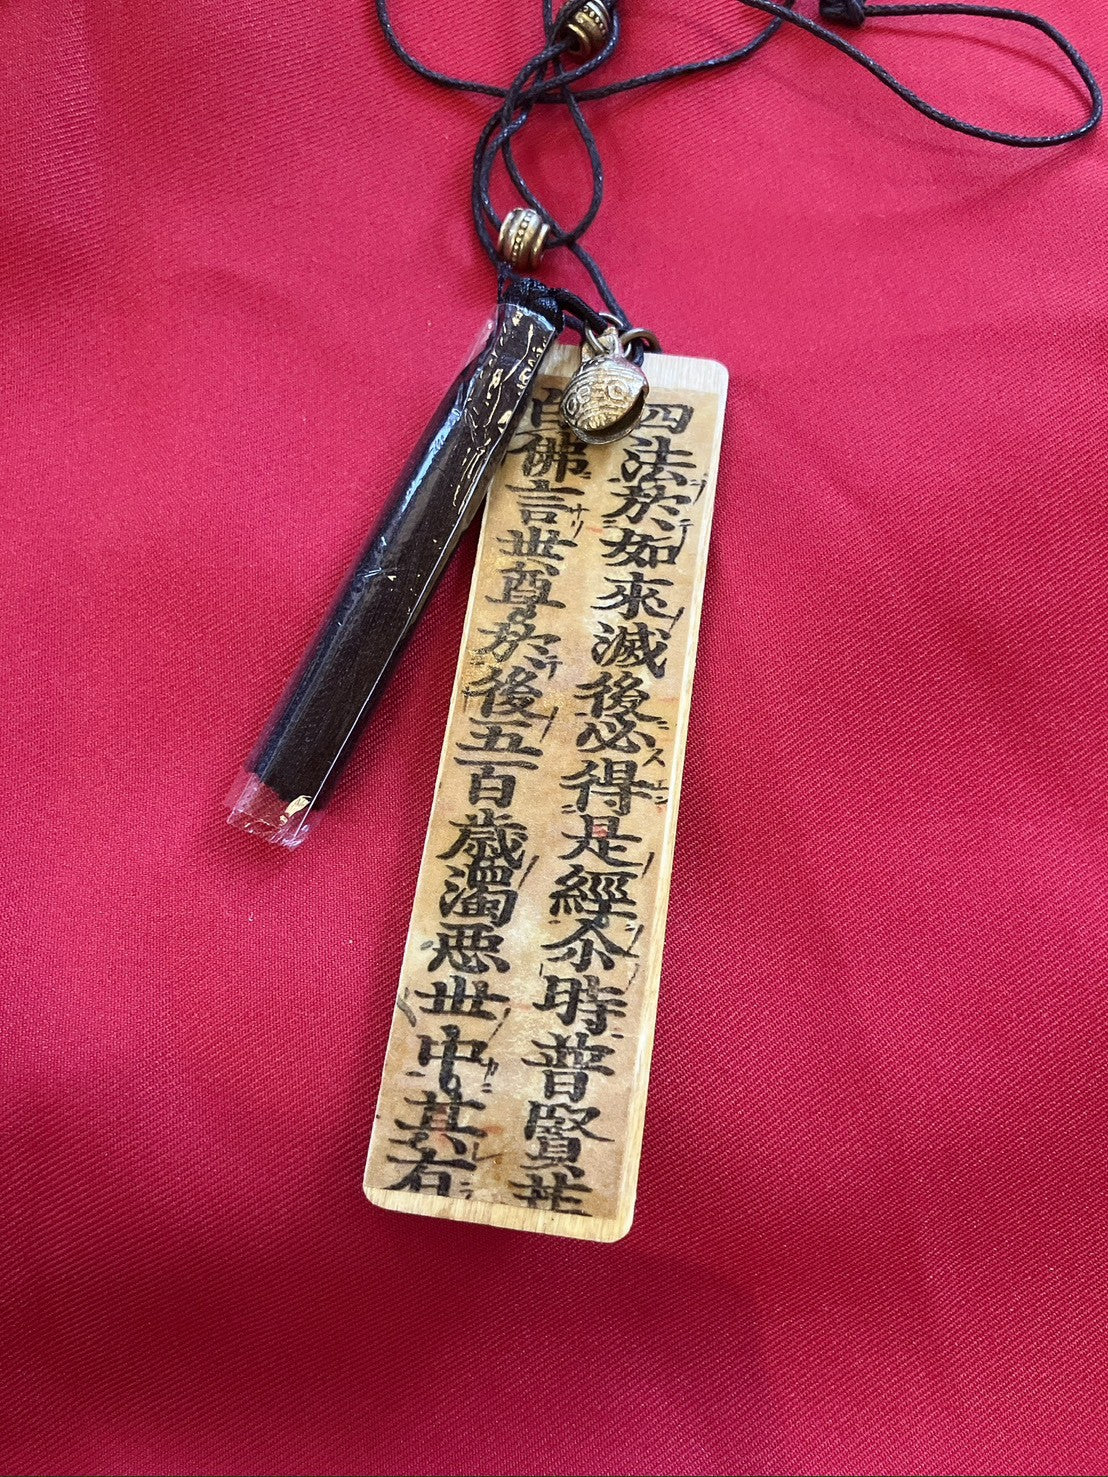 四法於如來滅後必得是經尒時普賢
白佛言世尊於後五百歲濁惡世中其有